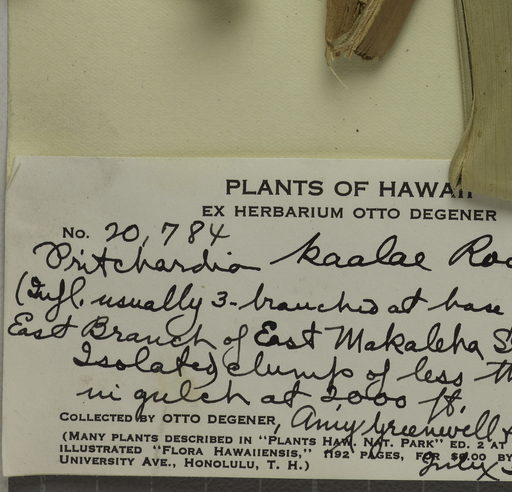 PLANTS OF HAWAII
EX HERBARIUM OTTO DEGENER
No. 20,784
Pritchardia kaalae Roc
(Infl. usually 3-branched at base
East Branch of East Makaleha
Isolated clump of less th
in gulch at 2000 ft.
COLLECTED BY OTTO DEGENER, Amy Greenwell &
(MANY PLANTS DESCRIBED IN "PLANTS HAW. NAT. PARK" ED. 2 AT
ILLUSTRATED "FLORA HAWAIIENSIS," 1192 PAGES, FOR $6.00 BY
UNIVERSITY AVE., HONOLULU, T. H.)